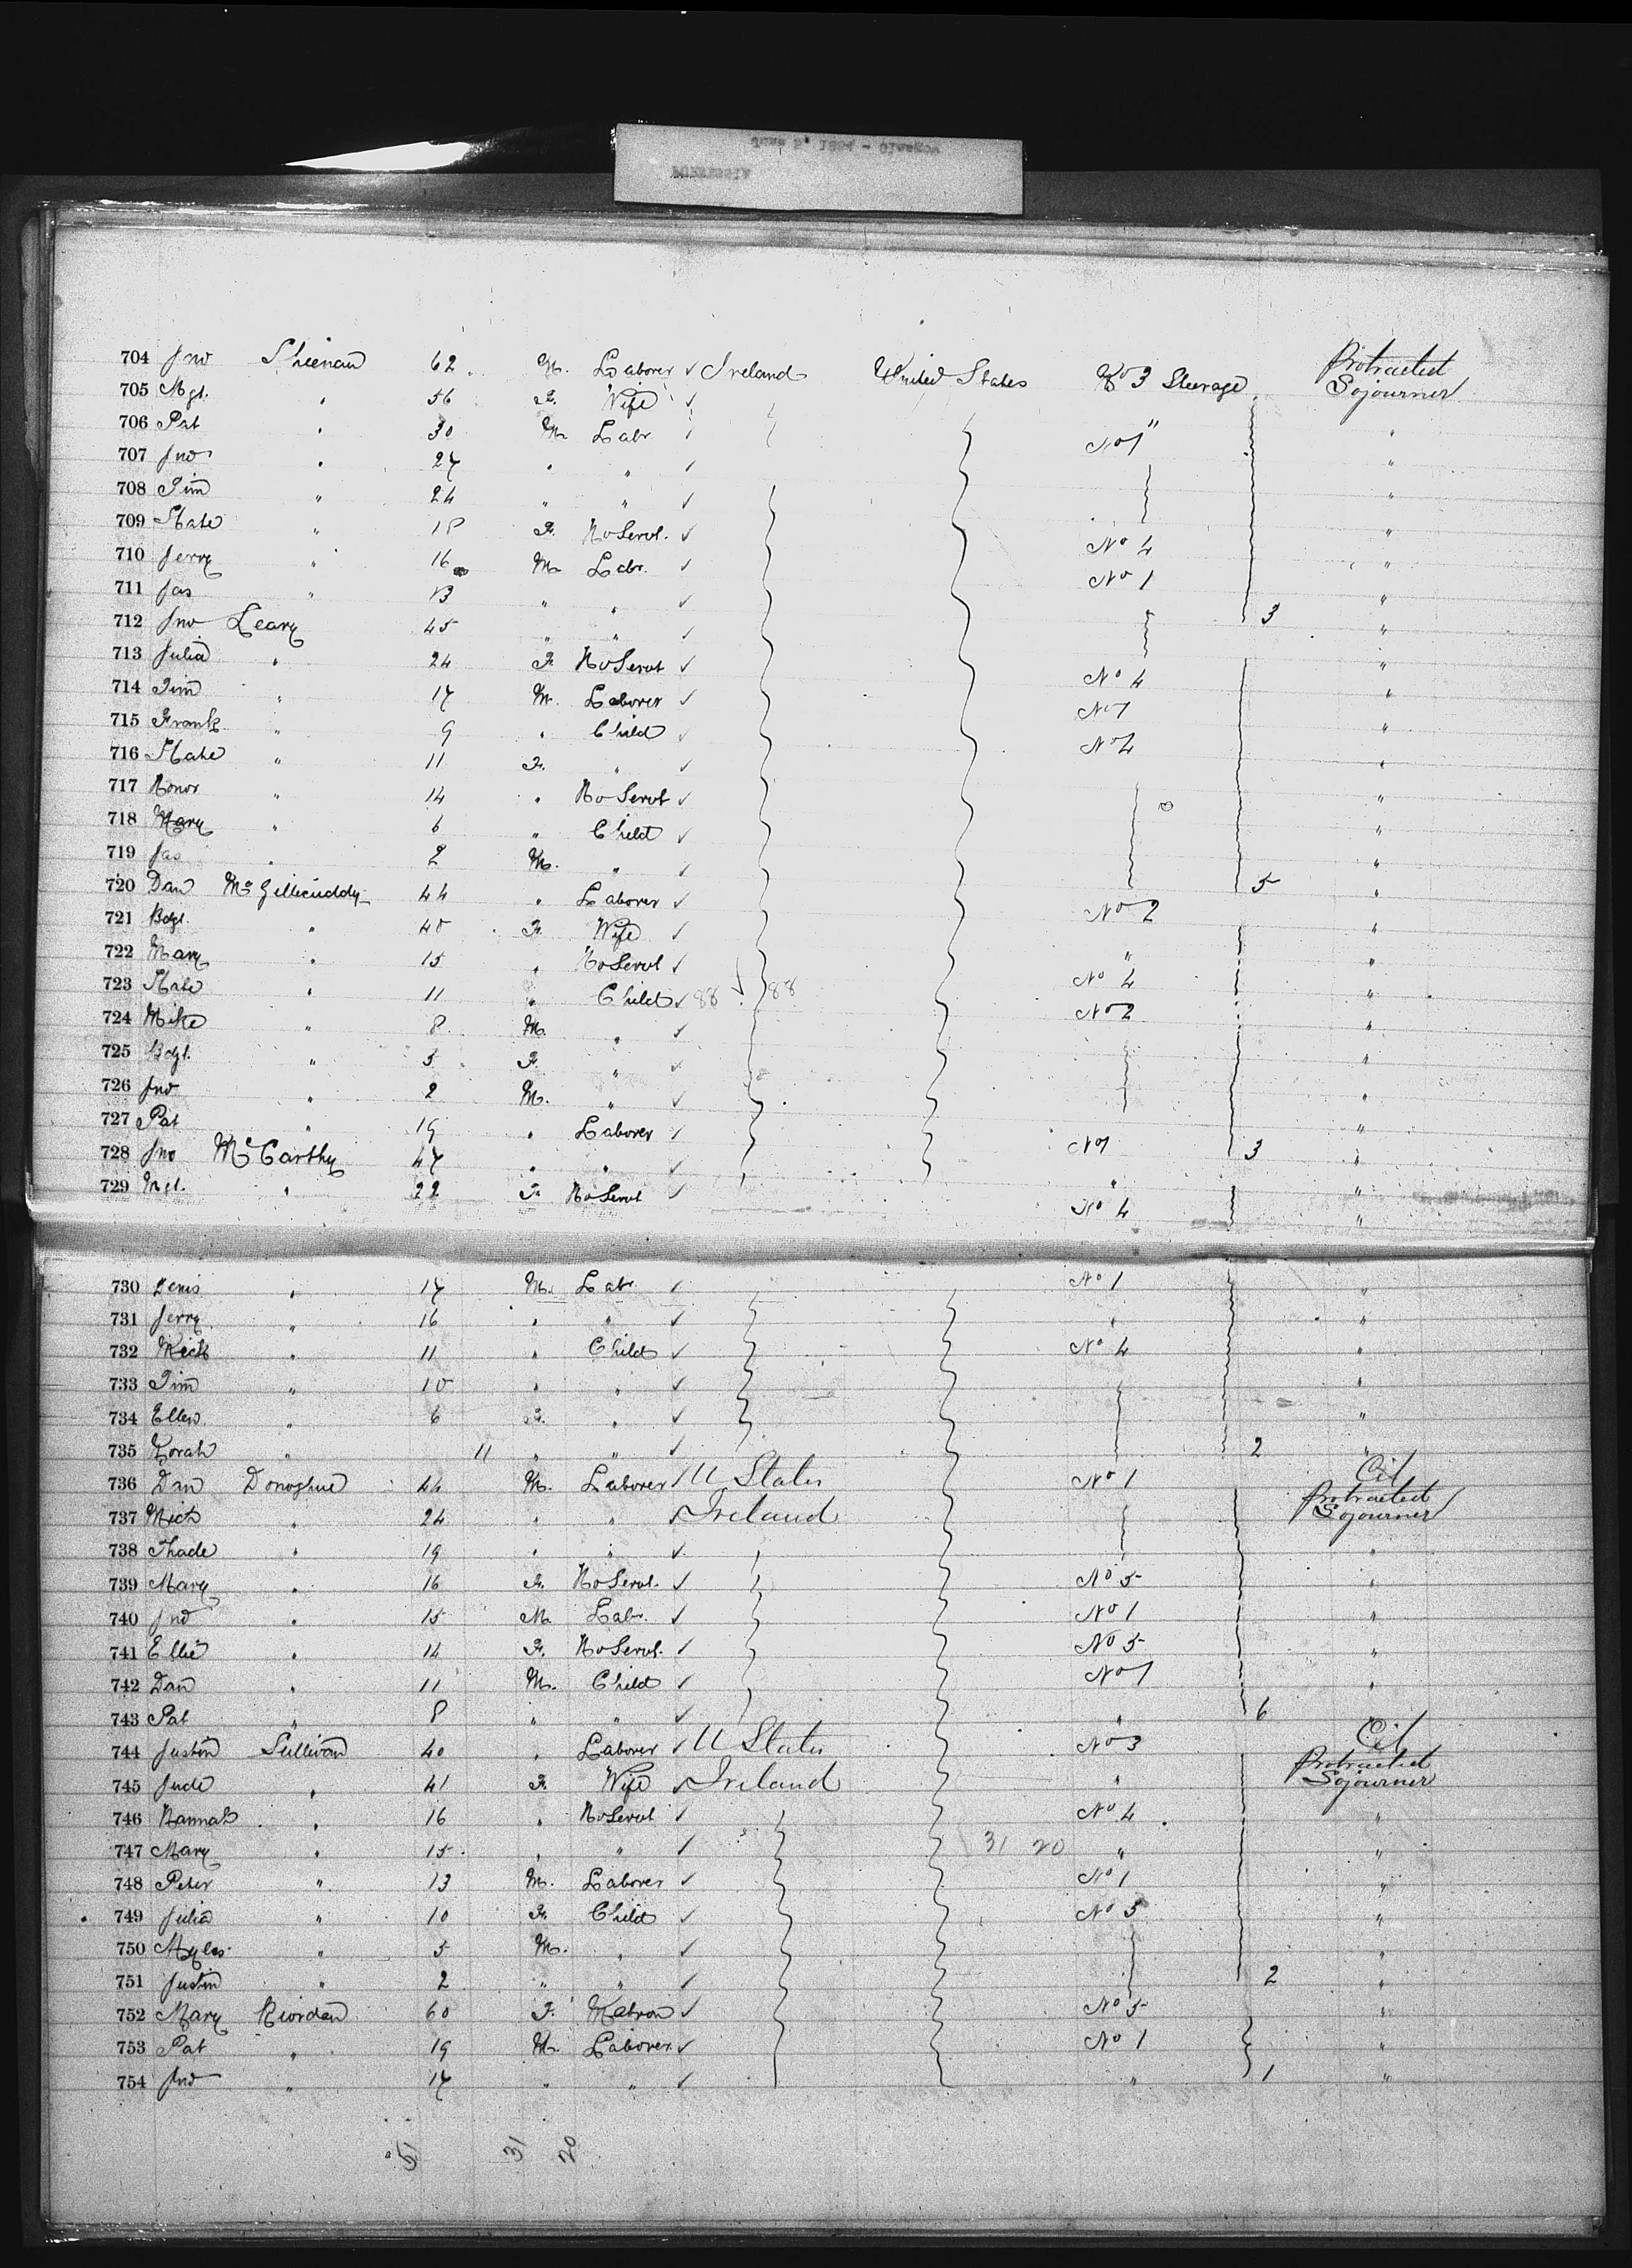 704 Jno Sheenan 62 M. Laborer ✓ Ireland United States No 3 Steerage Protracted Sojourner
705 Mgt. " 56 F. Wife ✓
706 Pat " 30 M Labr ✓ No 1 " "
707 Jno " 27 " " ✓ "
708 Tim " 24 " " ✓ "
709 Kate " 18 F. Ho Servt. ✓ No 4 "
710 Jerry " 16 M Labr. ✓ No 1 "
711 Jas " 13 " " ✓ 3 "
712 Jno Leary 45 " " ✓ "
713 Julia " 24 F Ho Servt ✓ No 4 "
714 Tim " 17 M. Laborer ✓ No 1 "
715 Frank " 9 " Child ✓ No 4 "
716 Kate " 11 F. " ✓ "
717 Honor " 14 " Ho Servt ✓ "
718 Mary " 6 " Child ✓ "
719 Jas " 2 M. " ✓ 5 "
720 Dan McGillicuddy 44 " Laborer ✓ No 2 "
721 Bdgt. " 40 F. Wife ✓ " "
722 Mary " 15 " Ho Servt ✓ No 4 "
723 Kate " 11 " Child ✓ 88 ✓ 88 No 2 "
724 Mike " 8 M. " ✓ "
725 Bdgt. " 5 F. " ✓ "
726 Jno " 2 M. " ✓ "
727 Pat " 19 " Laborer ✓ No 1 3 "
728 Jno McCarthy 47 " " ✓ " "
729 Mgt. " 22 F. Ho Servt ✓ No 4 "
730 Denis " 17 M. Labr. ✓ No 1 "
731 Jerry " 16 " " ✓ " "
732 Mich " 11 " Child ✓ No 4 "
733 Tim " 10 " " ✓ "
734 Ellen " 6 F. " ✓ "
735 Norah " 11 " " ✓ 2 "
736 Dan Donoghue 44 M. Laborer ✓ U States No 1 Cit
737 Mich " 24 " " ✓ Ireland Protracted Sojourner
738 Thade " 19 " " ✓ "
739 Mary " 16 F. Ho Servt. ✓ No 5 "
740 Jno " 15 M. Labr. ✓ No 1 "
741 Ellie " 14 F. Ho Servt. ✓ No 5 "
742 Dan " 11 M. Child ✓ No 1 "
743 Pat " 8 " " ✓ " 6 "
744 Justin Sullivan 40 " Laborer ✓ U States No 3 Cit
745 Jude " 41 F. Wife ✓ Ireland " Protracted Sojourner
746 Hannah " 16 " Ho Servt ✓ No 4 "
747 Mary " 15 " " ✓ 31 20 " "
748 Peter " 13 M. Laborer ✓ No 1 "
749 Julia " 10 F. Child ✓ No 5 "
750 Myles " 5 M. " ✓ "
751 Justin " 2 " " ✓ 2 "
752 Mary Riordan 60 F. Matron ✓ No 5 "
753 Pat " 19 M. Laborer ✓ No 1 "
754 Jno " 17 " " ✓ " 1 "
51 31 20